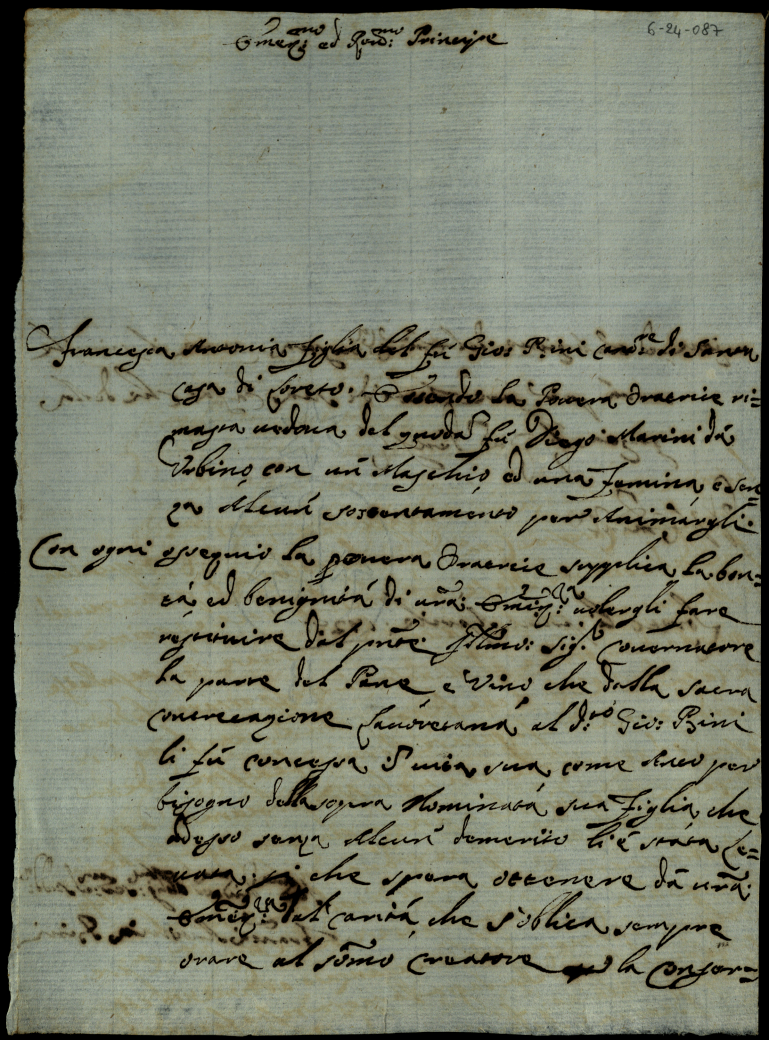 6-24-087
Emin:mo ed Rend:mo Principe
Francesca Antonia figlia del fù Gio: Pini Card:re di Santa
casa di Loreto. Essendo la Povera Oratrice ri=
masta vedova del quoda fù Diego Marini dà
Urbino con un Maschio ed una femina, e sen
za Alcun sostentamento per
Con ogni ossequio la povera Oratrice supplica la bon=
tà ed benignità di vrã: Eminza: volergli fare
restituire dal pnte Illmo: Sigr Governatore
la parte del Pane e Vino che dalla sacra
Congregazione Lauretana al d:to Gio: Pini
li fù concessa P vita sua come Anco per
bisogno della sopra Nominata sua figlia che
adesso senza Alcun demerito li è stata le=
vata: che spera ottenere dà vrã:
Eminza: tal carità che s'oblica sempre
orare al sõmo Creatore la conser=